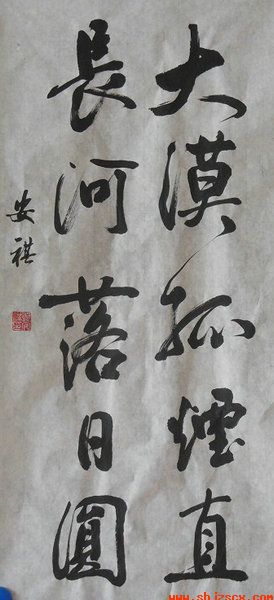 大漠孤煙直
長河落日圓
安祺
www.shjzscx.com